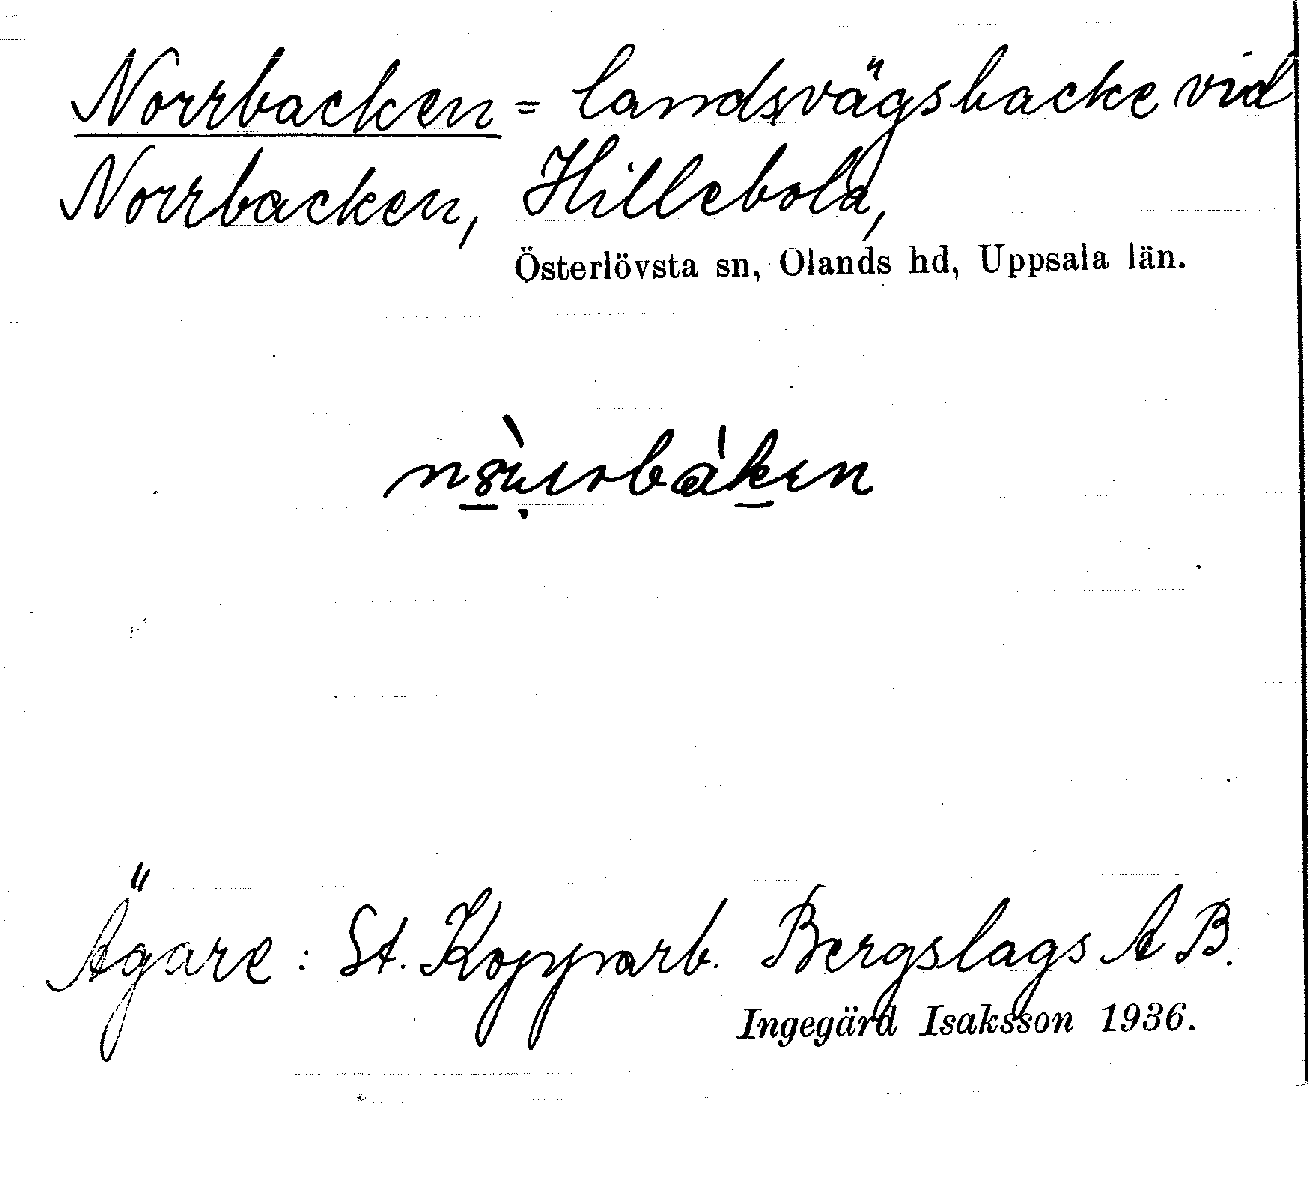 Norrbacken = landsvägsbacke vid
Norrbacken, Hillebola,
Österlövsta sn, Olands hd, Uppsala län.
Ägare: St. Kopparb. Bergslags AB.
Ingegärd Isaksson 1936.